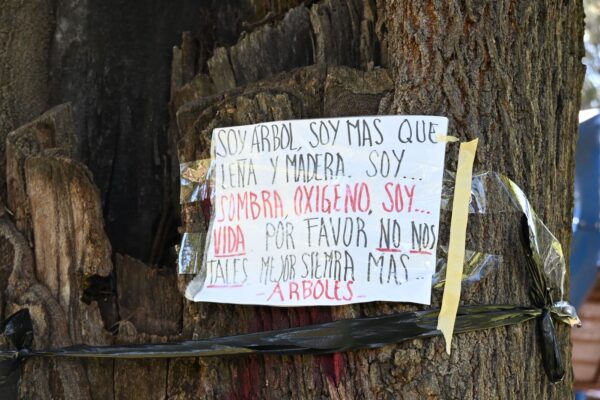 SOY ARBOL, SOY MAS QUE
LEÑA Y MADERA. SOY...
SOMBRA, OXIGENO, SOY...
VIDA POR FAVOR NO NOS
TALES MEJOR SIEMRA MAS...
ARBOLES